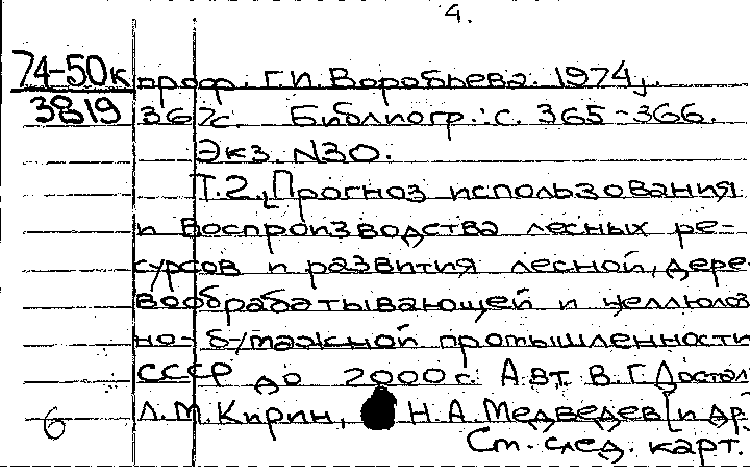 4.
74-50к проф. Г.И. Воробьева. 1974,
3819 367с. Библиогр.: с. 365-366.
Экз. N30.
Т.2. Прогноз использования
и воспроизводства лесных ре-
сурсов и развития лесной, дере-
вообрабатывающей и целлюлоз
но-бумажной промышленности
СССР до 2000г. Авт. В.Г. Достал
6 Л.М. Кирин, Н.А. Медведев [и др.
См. след. карт.